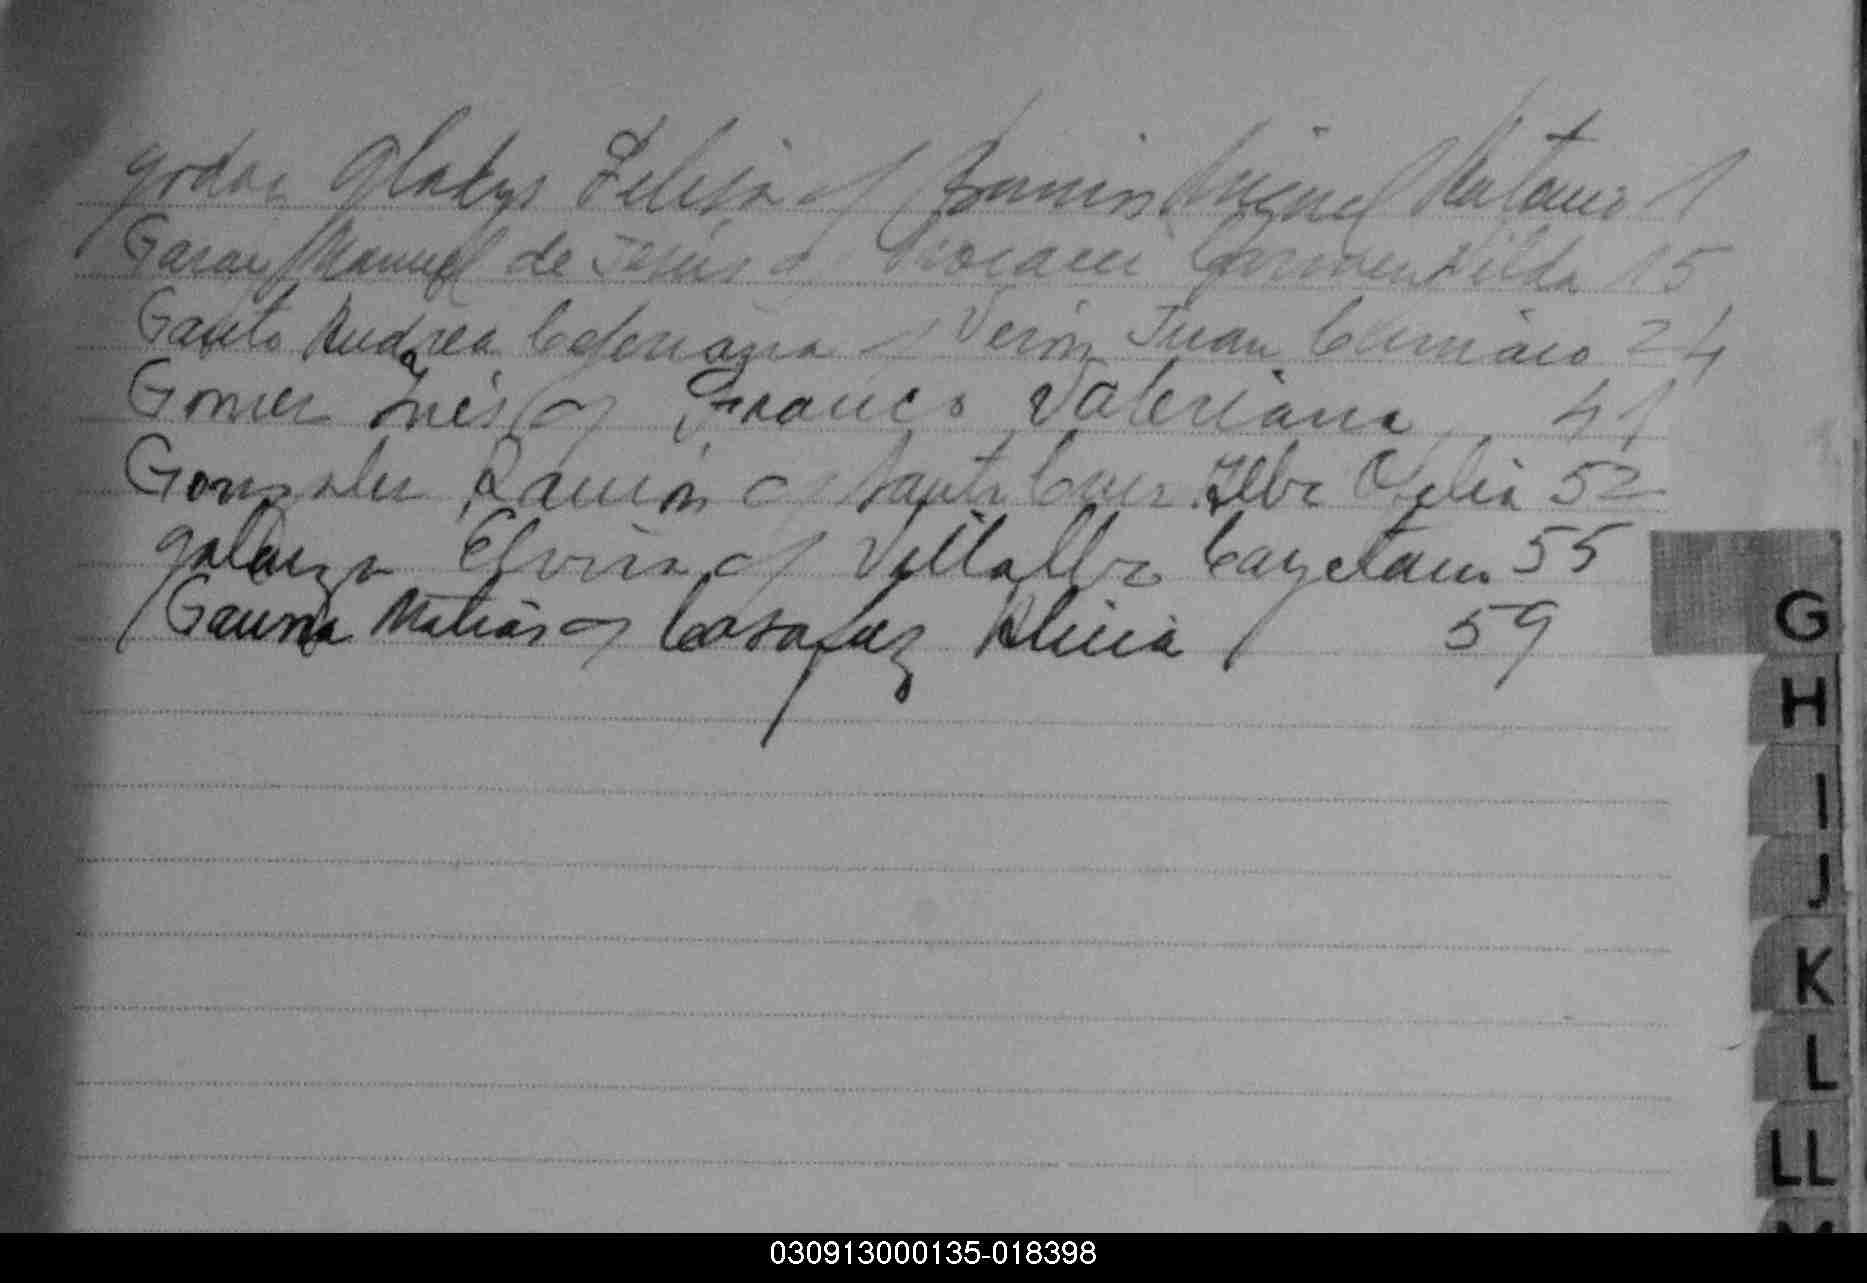 Godoy Gladys Felisa c/ Miguel Antonio 1
Garay Manuel de Jesús c/ Carmen Hilda 15
Gauto Andrea Ceferiana c/ Verón Juan 24
Gomez Inés c/ Franco Valeriana 41
Gonzalez Ramón c/ Santa Cruz Ofelia 52
Galarza Elvira c/ Villalba Cayetano 55
Gauna Matias c/ Alicia 59
G
H
I
J
K
L
LL
M
030913000135-018398